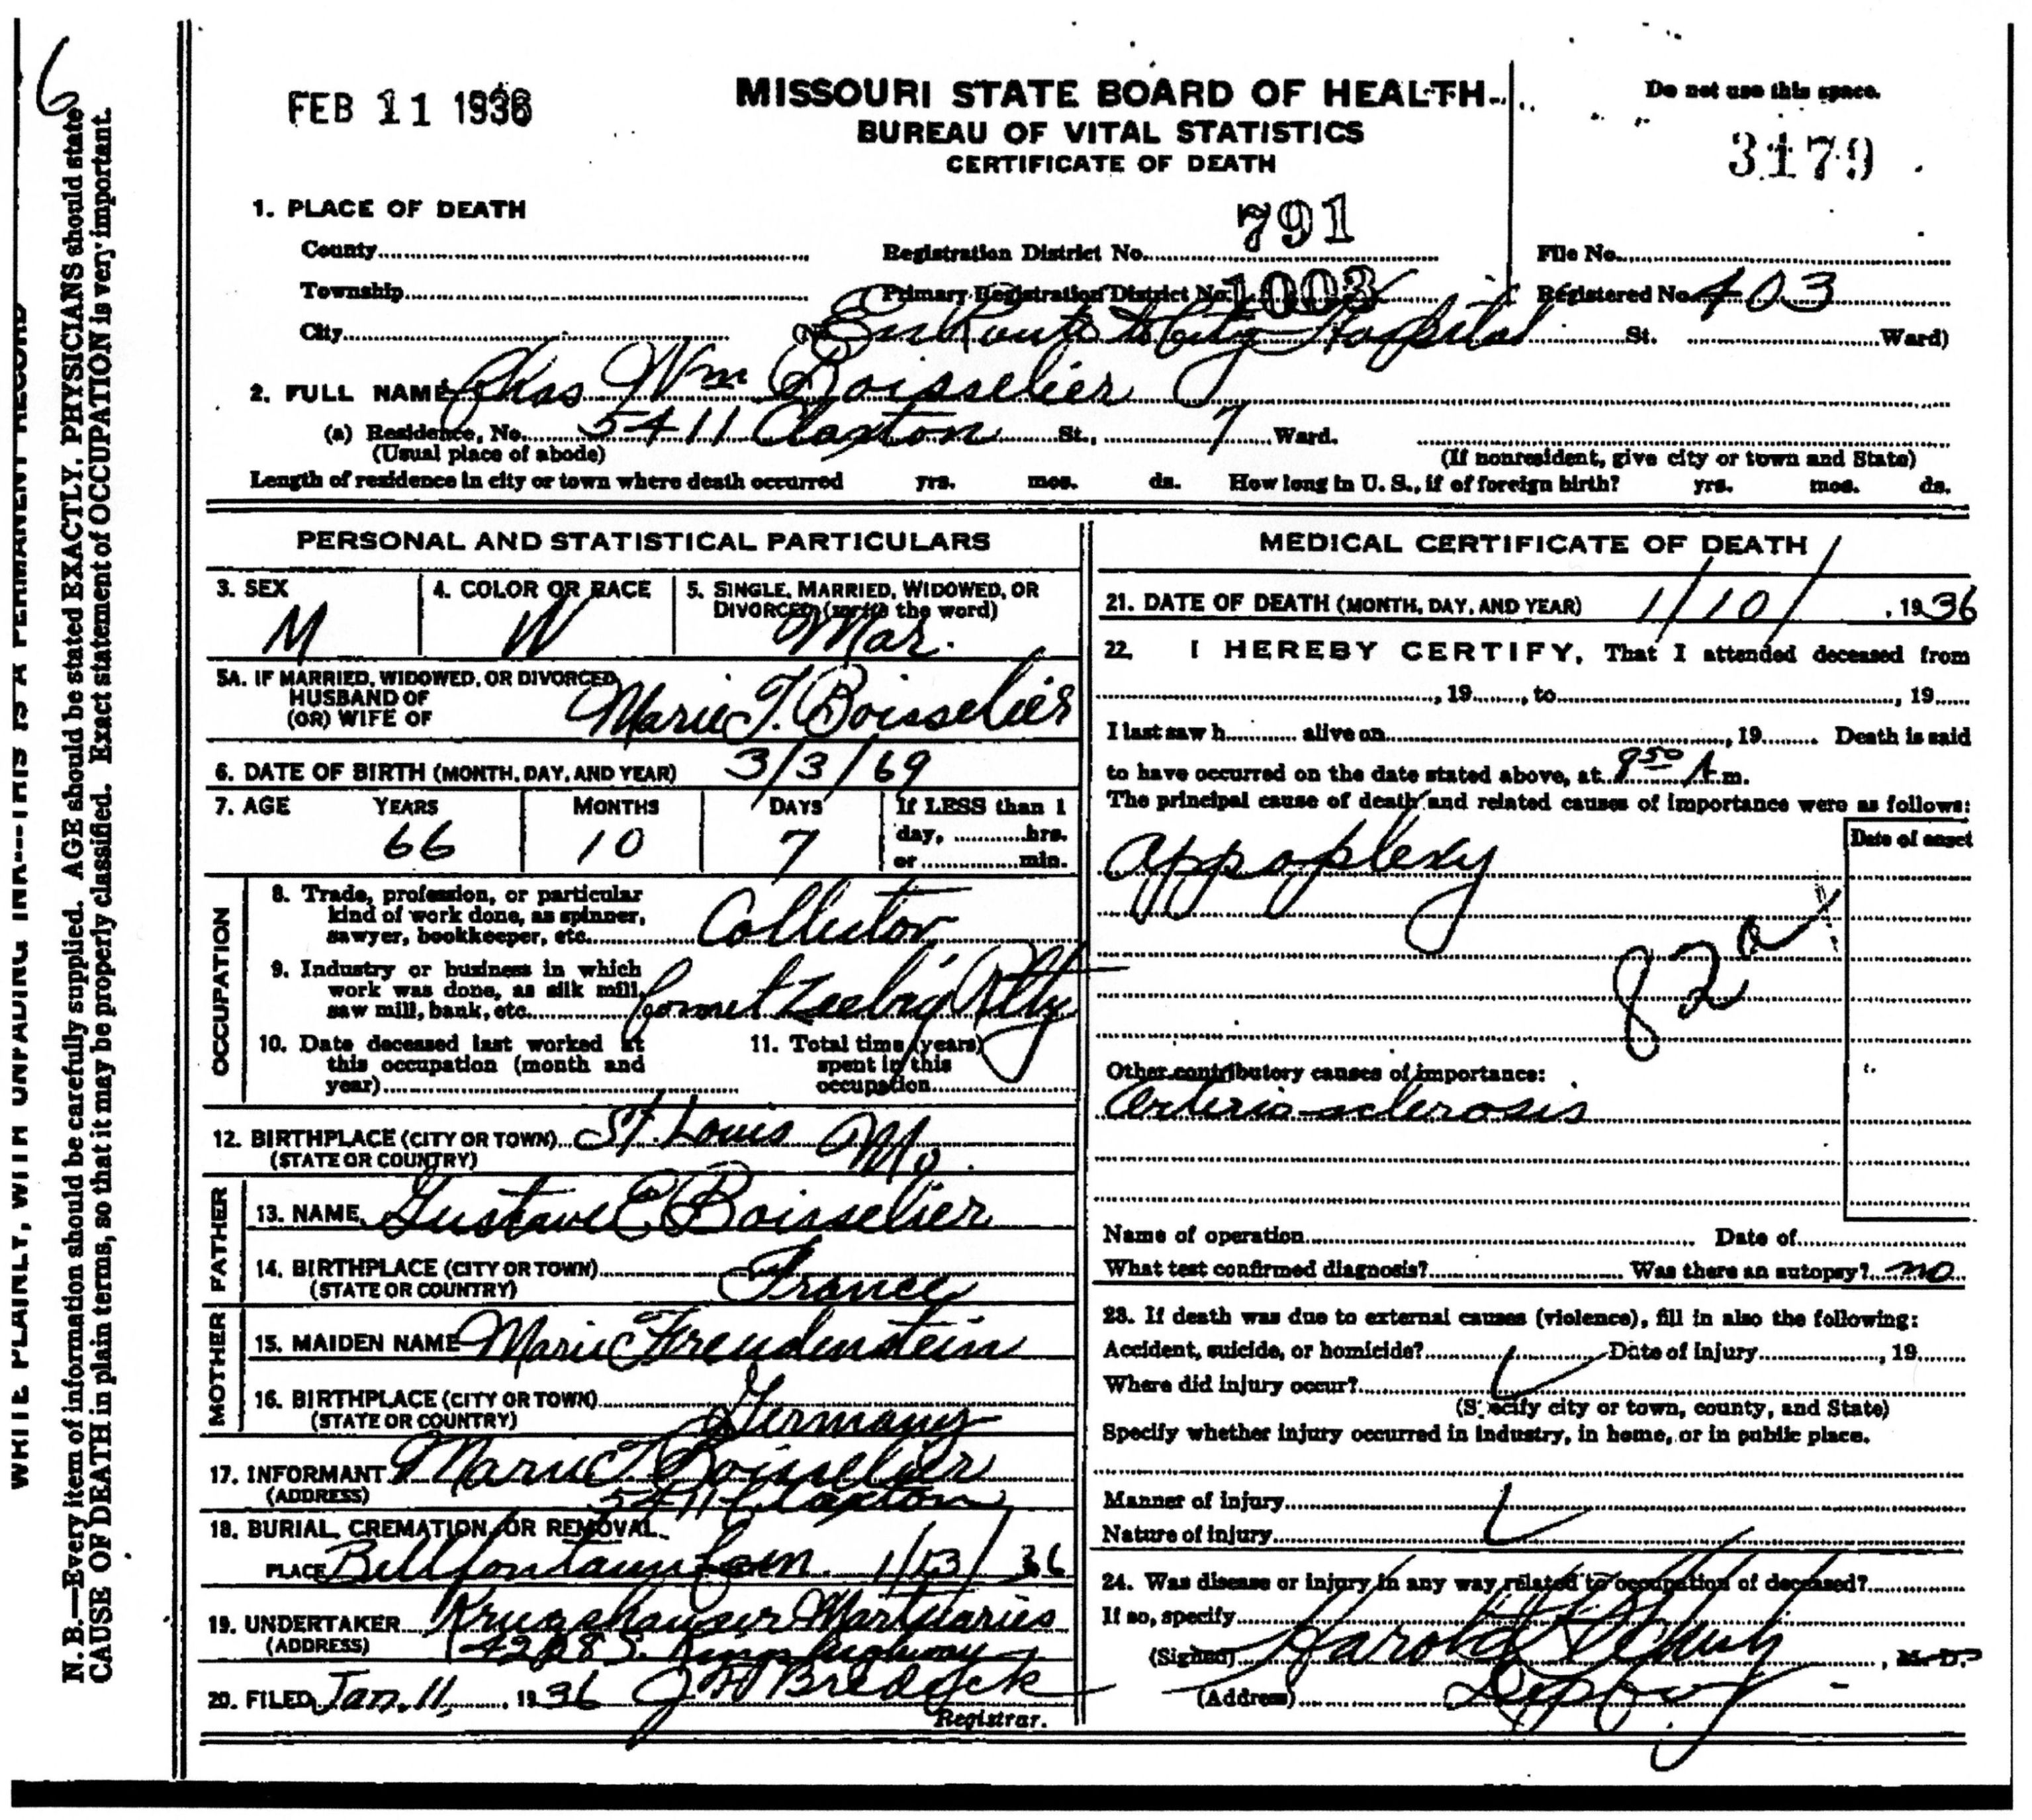 6
WRITE PLAINLY, WITH UNFADING INK---THIS IS A PERMANENT RECORD
N. B.—Every item of information should be carefully supplied. AGE should be stated EXACTLY. PHYSICIANS should state
CAUSE OF DEATH in plain terms, so that it may be properly classified. Exact statement of OCCUPATION is very important.
FEB 11 1936
MISSOURI STATE BOARD OF HEALTH
BUREAU OF VITAL STATISTICS
CERTIFICATE OF DEATH
Do not use this space.
3179
1. PLACE OF DEATH
County Registration District No. 791 File No.
Township Primary Registration District No. 1003 Registered No. 403
City (No. En Route to City Hospital St. Ward)
2. FULL NAME Chas Wm Boisselier
(a) Residence, No. 5411 Claxton St., 7 Ward.
(Usual place of abode) (If nonresident, give city or town and State)
Length of residence in city or town where death occurred yrs. mos. ds. How long in U. S., if of foreign birth? yrs. mos. ds.
PERSONAL AND STATISTICAL PARTICULARS
3. SEX 4. COLOR OR RACE 5. SINGLE, MARRIED, WIDOWED, OR
DIVORCED (write the word)
M W Mar.
5A. IF MARRIED, WIDOWED, OR DIVORCED
HUSBAND OF
(OR) WIFE OF Marie T. Boisselier
6. DATE OF BIRTH (MONTH, DAY, AND YEAR) 3/3/69
7. AGE YEARS MONTHS DAYS If LESS than 1
66 10 7 day, hrs.
or min.
OCCUPATION
8. Trade, profession, or particular
kind of work done, as spinner,
sawyer, bookkeeper, etc. Collector
9. Industry or business in which
work was done, as silk mill,
saw mill, bank, etc. Rlty
10. Date deceased last worked at
this occupation (month and
year)
11. Total time (years)
spent in this
occupation
12. BIRTHPLACE (CITY OR TOWN) St. Louis Mo.
(STATE OR COUNTRY)
FATHER
13. NAME Gustave E Boisselier
14. BIRTHPLACE (CITY OR TOWN) France
(STATE OR COUNTRY)
MOTHER
15. MAIDEN NAME Marie Freudenstein
16. BIRTHPLACE (CITY OR TOWN) Germany
(STATE OR COUNTRY)
17. INFORMANT Marie T. Boisselier
(ADDRESS) 5411 Claxton
18. BURIAL, CREMATION, OR REMOVAL
PLACE Bellfontaine Cem. 1/13/36
19. UNDERTAKER Mortuaries
(ADDRESS) 4228 S. Kingshighway
20. FILED Jan. 11, 1936 Bredeck
Registrar.
MEDICAL CERTIFICATE OF DEATH
21. DATE OF DEATH (MONTH, DAY, AND YEAR) 1/10/, 1936
22. I HEREBY CERTIFY, That I attended deceased from
, 19 , to , 19
I last saw h alive on , 19 Death is said
to have occurred on the date stated above, at 9 50 A m.
The principal cause of death and related causes of importance were as follows:
Date of onset
Appoplexy
82a
Other contributory causes of importance:
Arterio-sclerosis
Name of operation Date of
What test confirmed diagnosis? Was there an autopsy? no
23. If death was due to external causes (violence), fill in also the following:
Accident, suicide, or homicide? Date of injury , 19
Where did injury occur?
(Specify city or town, county, and State)
Specify whether injury occurred in industry, in home, or in public place.
Manner of injury
Nature of injury
24. Was disease or injury in any way related to occupation of deceased?
If so, specify
(Signed) Harold , M. D.
(Address)